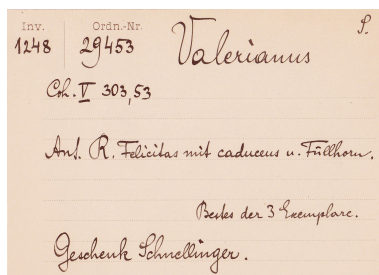 Inv. Ordn.-Nr. S.
1248 29453 Valerianus
Coh. V 303,53
Ant. R. Felicitas mit caduceus u. Füllhorn.
Bestes der 3 Exemplare.
Geschenk Schnellinger.